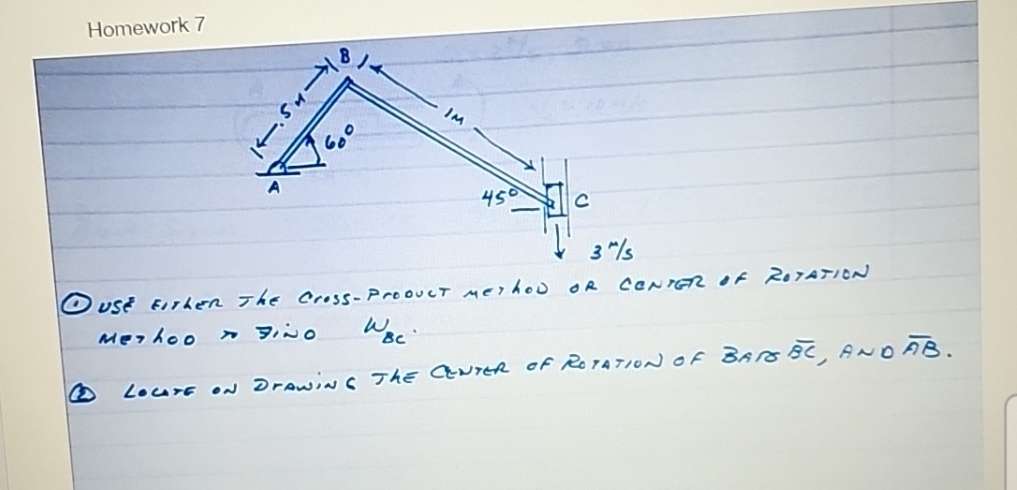 Homework 7
B
.5 M
1M
60°
A
45°
C
3 m/s
① USE EITHER THE CROSS-PRODUCT METHOD OR CENTER OF ROTATION
METHOD TO FIND WBC.
② LOCATE ON DRAWING THE CENTER OF ROTATION OF BARS BC, AND AB.